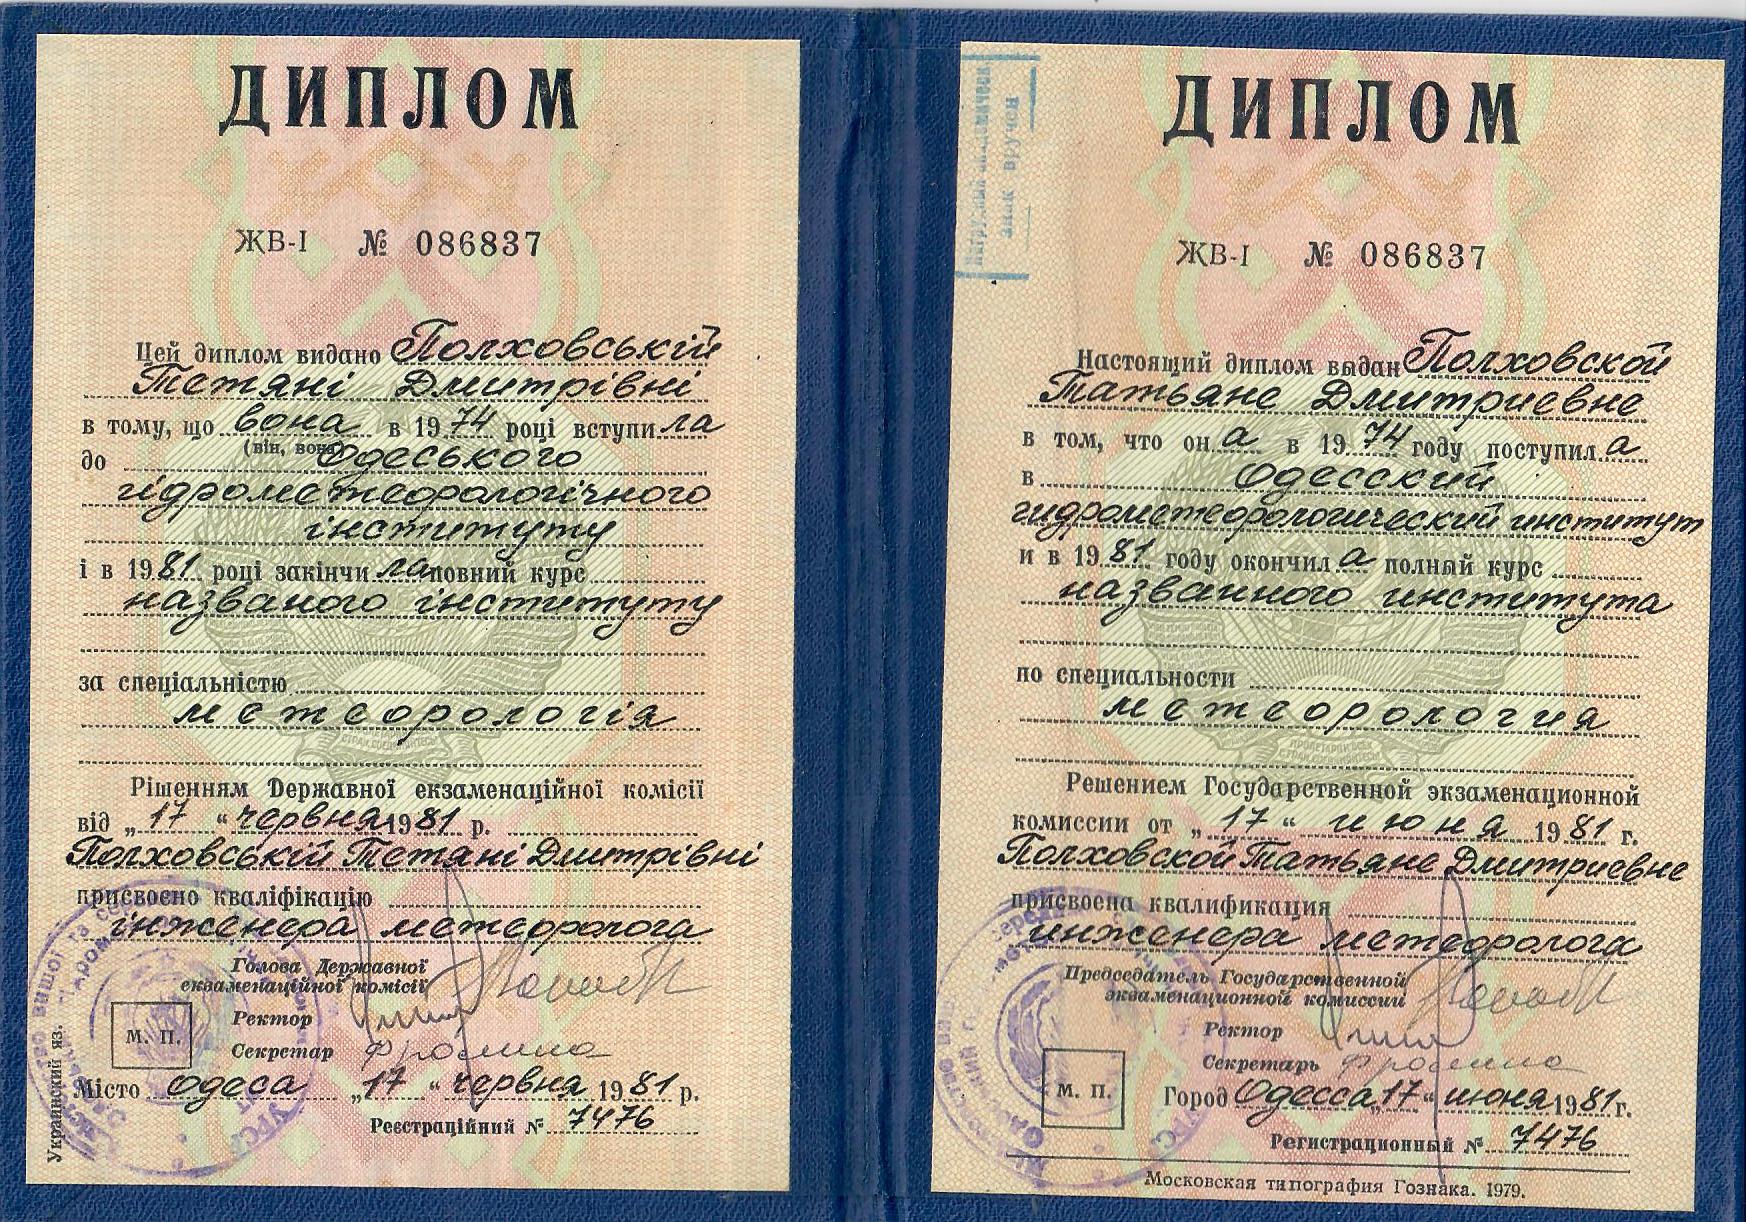 ДИПЛОМ
ЖВ-I № 086837
Цей диплом видано Полховській
Тетяні Дмитрівні
в тому, що вона в 1974 році вступила
(він, вона)
до Одеського
гідрометеорологічного
інституту
і в 1981 році закінчила повний курс
названого інституту
за спеціальністю
метеорологія
Рішенням Державної екзаменаційної комісії
від „17“ червня 1981 р.
Полховській Тетяні Дмитрівні
присвоєно кваліфікацію
інженера метеоролога
Голова Державної
екзаменаційної комісії
Ректор
Секретар
М. П.
Місто Одеса „17“ червня 1981 р.
Реєстраційний № 7476
Украинский яз.
ДИПЛОМ
Нагрудный академический
знак вручен
ЖВ-I № 086837
Настоящий диплом выдан Полховской
Татьяне Дмитриевне
в том, что она в 1974 году поступила
в Одесский
гидрометеорологический институт
и в 1981 году окончила полный курс
названного института
по специальности
метеорология
Решением Государственной экзаменационной
комиссии от „17“ июня 1981 г.
Полховской Татьяне Дмитриевне
присвоена квалификация
инженера метеоролога
Председатель Государственной
экзаменационной комиссии
Ректор
Секретарь
М. П.
Город Одесса „17“ июня 1981 г.
Регистрационный № 7476
Московская типография Гознака. 1979.